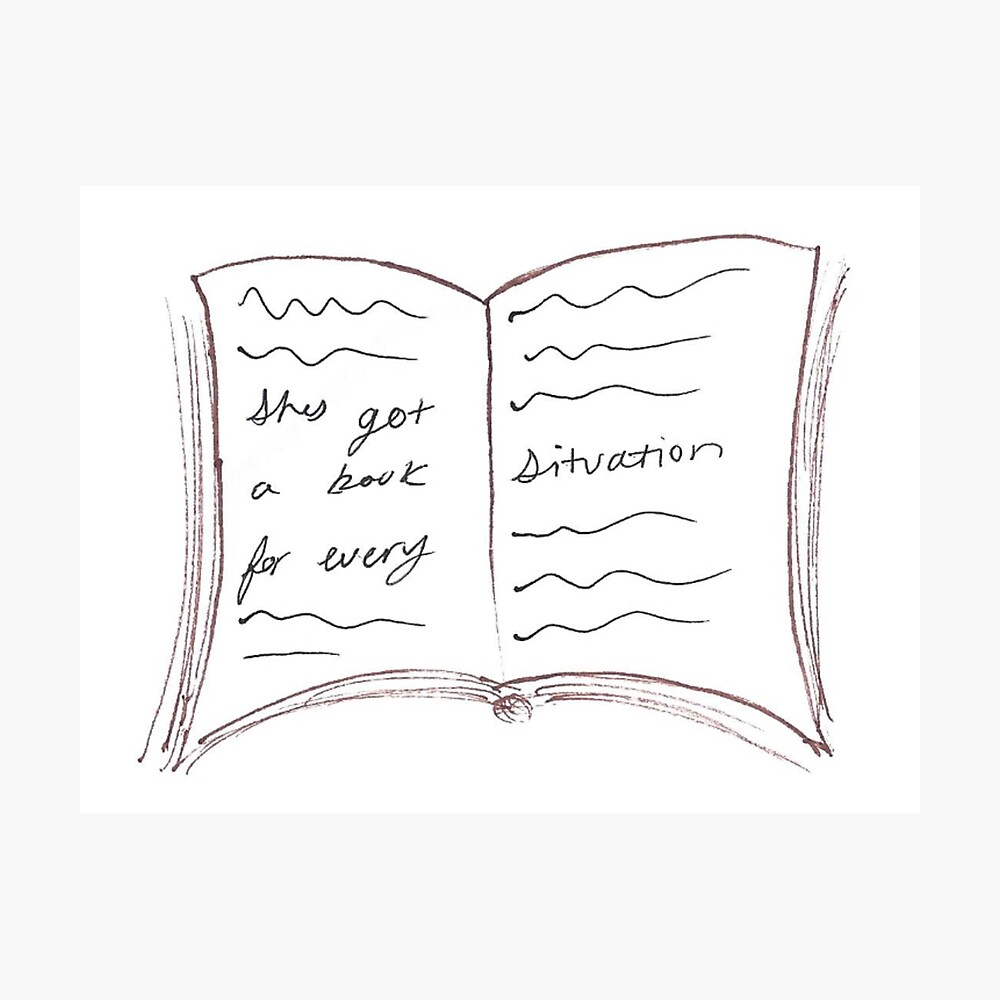 shes got
a book
for every
situation